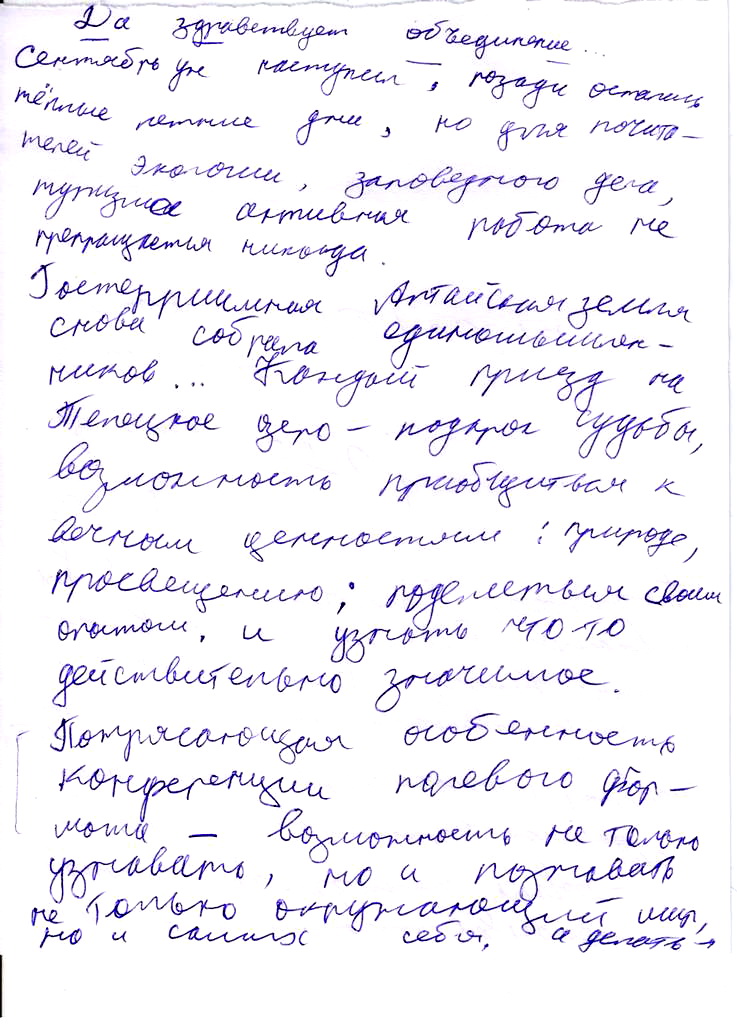 Да здравствует объединение...
Сентябрь уж наступил, позади остались
тёплые летние дни, но для почита-
телей экологии, заповедного дела,
туризма активная работа не
прекращается никогда.
Гостеприимная Алтайская земля
снова собрала единомышлен-
ников... Каждый приезд на
Телецкое озеро - подарок судьбы,
возможность приобщиться к
вечным ценностям: природе,
просвещению; поделиться своим
опытом, и узнать что то
действительно значимое.
Потрясающая особенность
конференции полевого фор-
мата - возможность не только
узнавать, но и познавать
не только окружающий мир,
но и самих себя, а делать →